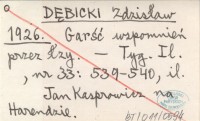 DĘBICKI Zdzisław
1926. Garść wspomnień
przez łzy. – Tyg. Il.
, nr 33: 539-540, il.
Jan Kasprowicz na
Harendzie.